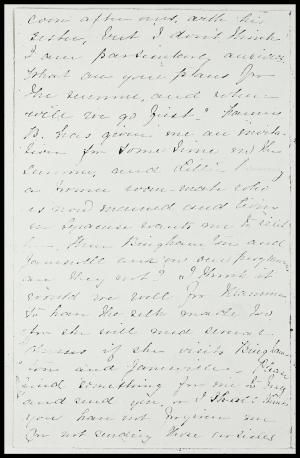 soon after ours, with his
sister, but I don't think
I am particularly anxious
What are your plans for
the summer, and when
will we go first? Fannie
B. has given me an invita-
tion for some time in the
summer, and
a former room-mate who
is now married and lives
in Syracuse wants me to visit
her. Then Binghamton and
Jamesville are on our programme
are they not? I think it
would be well for Mamma
to have the silk made too
for she will need several
dresses if she visits Bingham-
ton and Jamesville. Please
find something for me to buy
and send you, or I shall think
you have not forgiven me
for not sending those